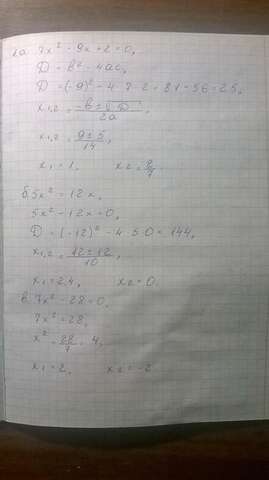 2a 7x² - 9x + 2 = 0,
D = b² - 4ac,
D = (-9)² - 4·7·2 = 81 - 56 = 25,
x₁,₂ = (-b ± √D)/2a
x₁,₂ = (9 ± 5)/14
x₁ = 1, x₂ = 2/7
б. 5x² = 12x,
5x² - 12x = 0,
D = (-12)² - 4·5·0 = 144,
x₁,₂ = (12 ± 12)/10
x₁ = 2,4, x₂ = 0.
в. 7x² - 28 = 0,
7x² = 28,
x² = 28/7 = 4,
x₁ = 2, x₂ = -2